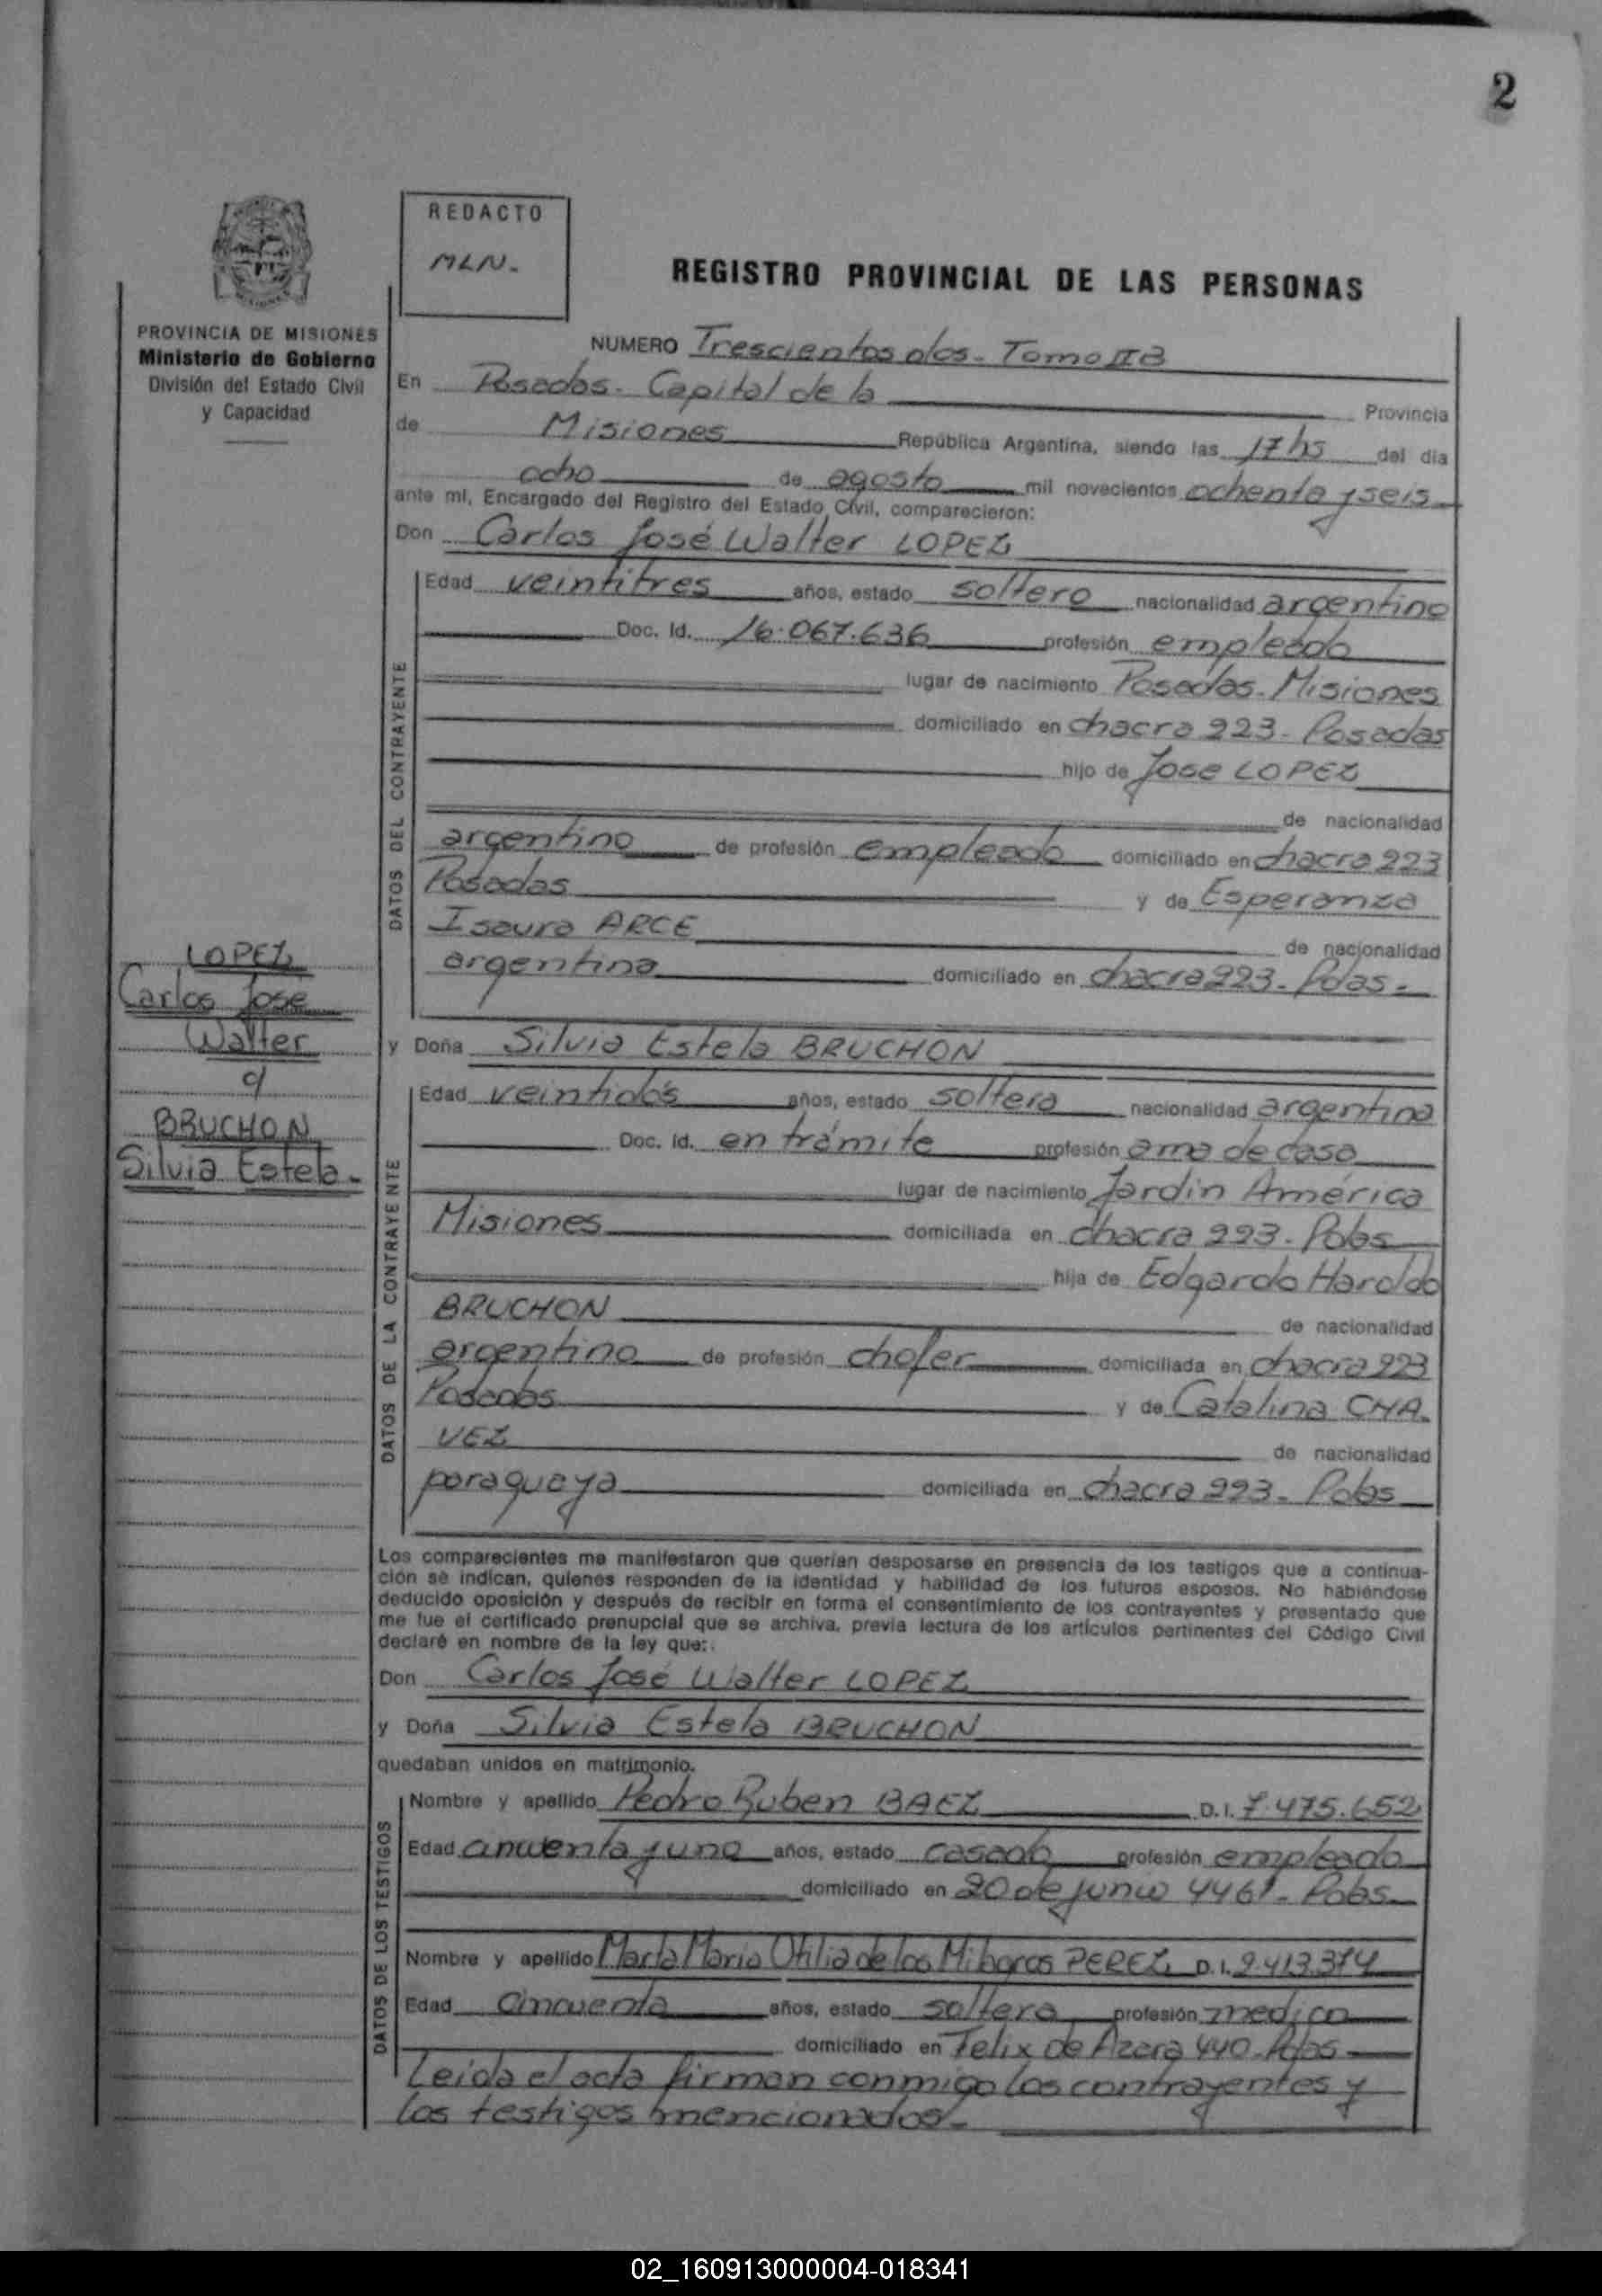 2
REDACTO
MLN.
REGISTRO PROVINCIAL DE LAS PERSONAS
PROVINCIA DE MISIONES
Ministerio de Gobierno
División del Estado Civil
y Capacidad
NUMERO Trescientos dos. Tomo II B
En Posadas. Capital de la Provincia
de Misiones República Argentina, siendo las 17 hs del día
ocho de agosto mil novecientos ochenta y seis
ante mí, Encargado del Registro del Estado Civil, comparecieron:
Don Carlos José Walter LOPEZ
DATOS DEL CONTRAYENTE
Edad veintitres años, estado soltero nacionalidad argentino
Doc. Id. 16.067.636 profesión empleado
lugar de nacimiento Posadas. Misiones
domiciliado en chacra 223. Posadas
hijo de Jose LOPEZ
de nacionalidad
argentino de profesión empleado domiciliado en chacra 223
Posadas y de Esperanza
Isaura ARCE de nacionalidad
argentina domiciliado en chacra 223. Pdas.
LOPEZ
Carlos José
Walter
c/
BRUCHON
Silvia Estela.
y Doña Silvia Estela BRUCHON
DATOS DE LA CONTRAYENTE
Edad veintidós años, estado soltera nacionalidad argentina
Doc. Id. en trámite profesión ama de casa
lugar de nacimiento Jardin América
Misiones domiciliada en chacra 223. Pdas
hija de Edgardo Haroldo
BRUCHON de nacionalidad
argentino de profesión chofer domiciliada en chacra 223
Posadas y de Catalina CHA.
VEZ de nacionalidad
paraguaya domiciliada en chacra 223. Pdas
Los comparecientes me manifestaron que querían desposarse en presencia de los testigos que a continua-
ción se indican, quienes responden de la identidad y habilidad de los futuros esposos. No habiéndose
deducido oposición y después de recibir en forma el consentimiento de los contrayentes y presentado que
me fue el certificado prenupcial que se archiva, previa lectura de los artículos pertinentes del Código Civil
declaré en nombre de la ley que:
Don Carlos José Walter LOPEZ
y Doña Silvia Estela BRUCHON
quedaban unidos en matrimonio.
DATOS DE LOS TESTIGOS
Nombre y apellido Pedro Ruben BAEZ D.I. 7.475.652
Edad cincuenta y uno años, estado casado profesión empleado
domiciliado en 20 de junio 4461. Pdas.
Nombre y apellido Marta Maria Otilia de los Milagros PEREZ D.I. 2.413.374
Edad cincuenta años, estado soltera profesión medica
domiciliado en Felix de Azara 440. Pdas
Leida el acta firman conmigo los contrayentes y
los testigos mencionados.
02_160913000004-018341